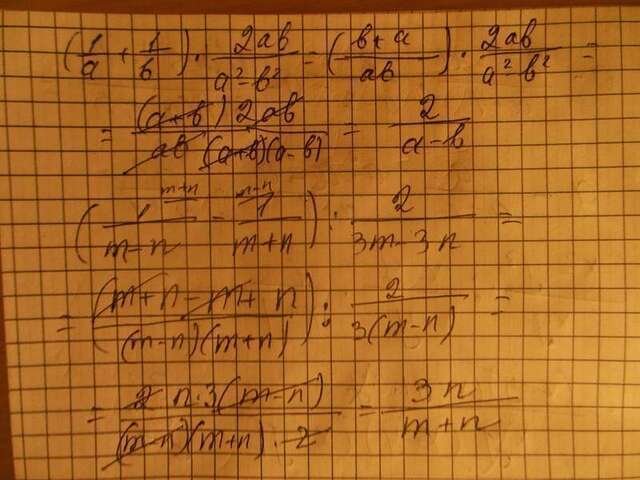 (1/a + 1/b) · 2ab/a²-b² = (b+a/ab) · 2ab/a²-b² =
= (a+b) 2ab/ab (a+b)(a-b) = 2/a-b
(1/m-n m+n - 1/m+n m-n) : 2/3m-3n =
= (m+n-m+n/(m-n)(m+n)) : 2/3(m-n) =
= 2n·3(m-n)/(m-n)(m+n)·2 = 3n/m+n